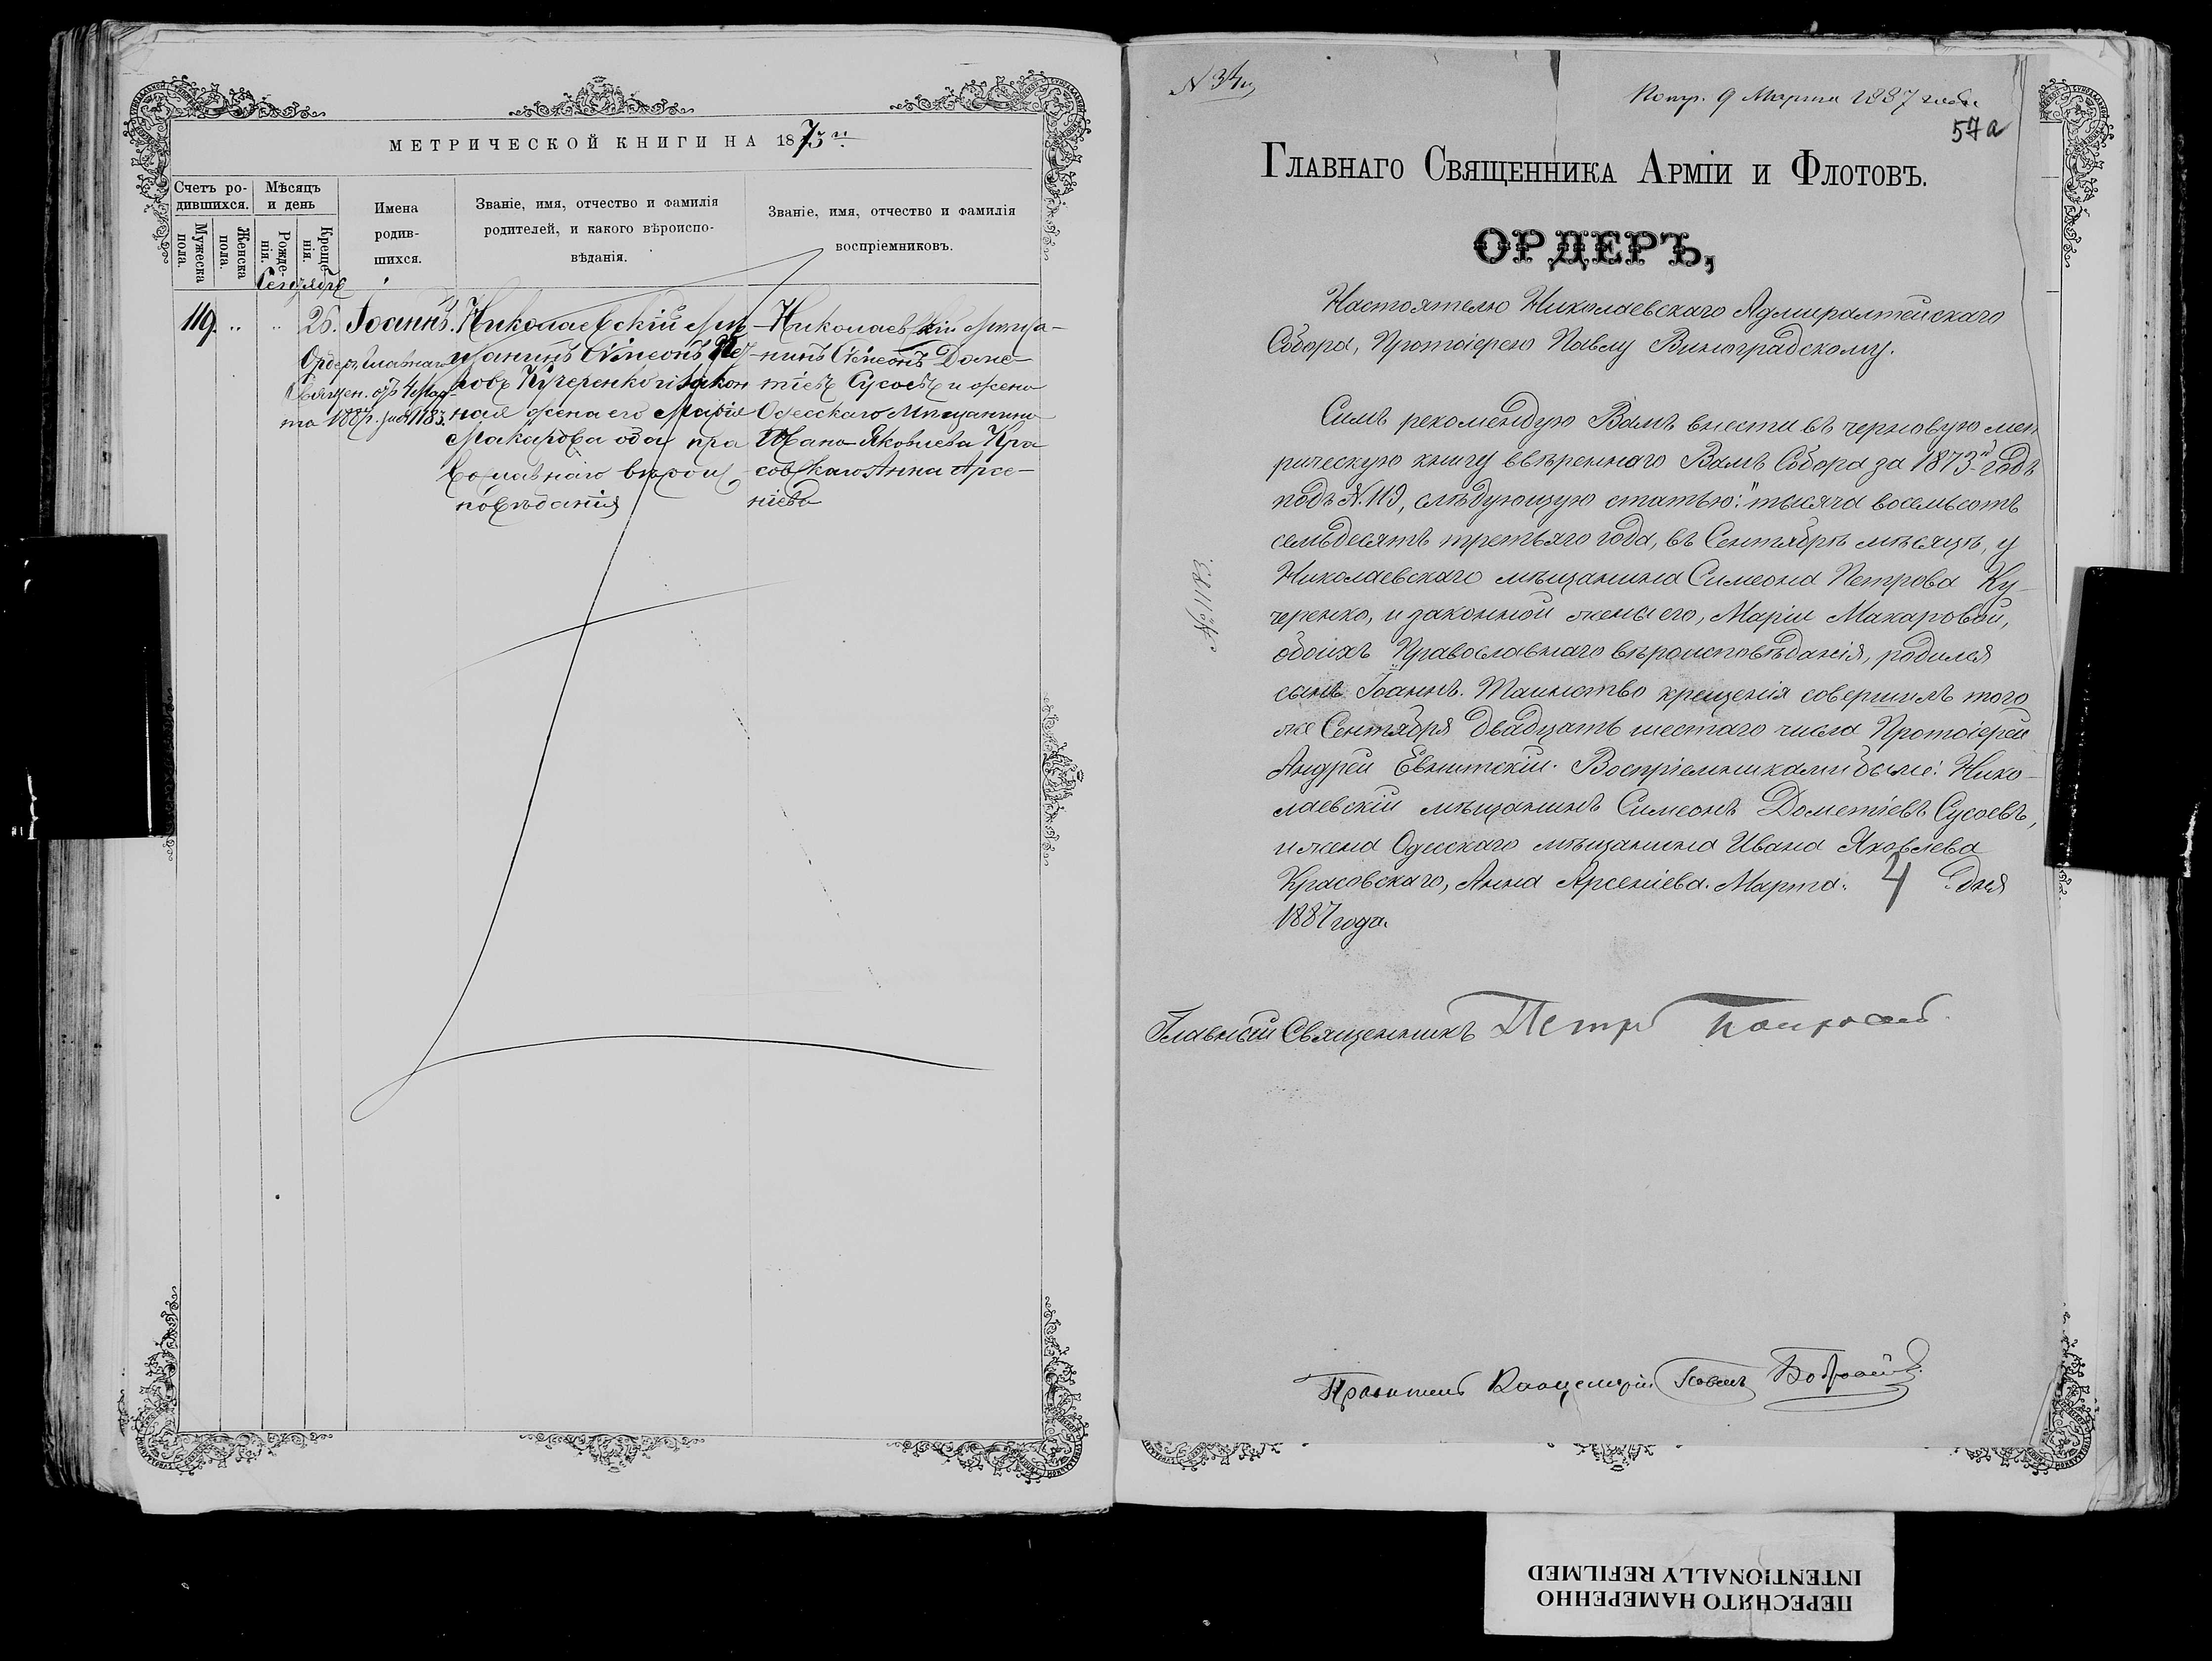 МЕТРИЧЕСКОЙ КНИГИ НА 1873й
Счетъ ро-
дившихся.
Мѣсяцъ
и день
Мужеска
пола.
Женска
пола.
Рожде-
нія.
Креще-
нія.
Имена
родив-
шихся.
Званіе, имя, отчество и фамилія
родителей, и какого вѣроиспо-
вѣданія.
Званіе, имя, отчество и фамилія
воспріемниковъ.
Сентябрь
119.
26.
Іоаннъ.
Ордеръ Главнаго
Священ. отъ 4 Мар-
та 1887 г. за № 1183.
Николаевскій мѣ-
щанинъ Сѵмеонъ Пет-
ровъ Кучеренко и закон
ная жена его Марія
Макарова оба пра
вославнаго вѣроис
повѣданія
Николаевскій мѣща-
нинъ Сѵмеонъ Доме-
тіевъ Сусоевъ и жена
Одесскаго Мѣщанина
Ивана Яковлева Кра
совскаго Анна Арсе-
ніева
N 34й
Получ. 9 Марта 1887 года
57а
ГЛАВНАГО СВЯЩЕННИКА АРМІИ И ФЛОТОВЪ.
ОРДЕРЪ,
Настоятелю Николаевскаго Адмиралтейскаго
Собора, Протоіерею Павлу Виноградскому.
Симъ рекомендую Вамъ внести въ черновую мет
рическую книгу ввѣреннаго Вамъ Собора за 1873й годъ
подъ N. 119, слѣдующую статью: "тысяча восемьсотъ
семьдесятъ третьяго года, въ Сентябрѣ мѣсяцѣ, у
Николаевскаго мѣщанина Симеона Петрова Ку-
черенко, и законной жены его, Маріи Макаровой,
обоихъ Православнаго вѣроисповѣданія, родился
сынъ Іоаннъ. Таинство крещенія совершилъ того
же Сентября двадцать шестаго числа Протоіерей
Андрей Евнитскій. Воспріемниками были: Нико-
лаевскій мѣщанинъ Симеонъ Дометіевъ Сусоевъ,
и жена Одесскаго мѣщанина Ивана Яковлева
Красовскаго, Анна Арсеніева. Марта 4 дня
1887 года.
№ 1183
Главный Священникъ Петръ Покровскій
Правитель Канцеляріи Павелъ
ПЕРЕСНЯТО НАМЕРЕННО
INTENTIONALLY REFILMED